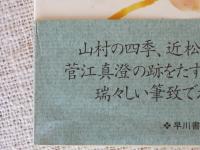 山村の四季、近松
菅江真澄の跡をたず
瑞々しい筆致で
❖早川書